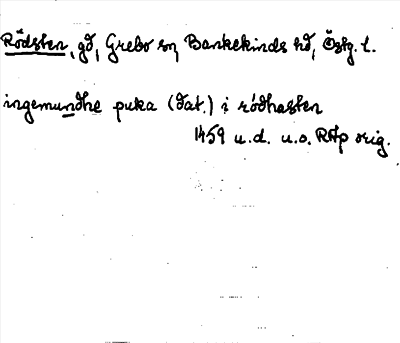 Rödsten, gd, Grebo sn, Bankekinds hd, Östg. l.
ingemundhe puka (dat.) i rödhasten
1459 u.d. u.o. RAp orig.